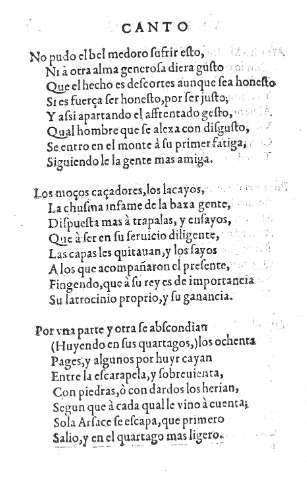 CANTO
No pudo el bel medoro sufrir esto,
Ni à otra alma generosa diera gusto
Que el hecho es descortes aunque sea honesto
Si es fuerça ser honesto, por ser justo;
Y assi apartando el affrentado gesto,
Qual hombre que se alexa con disgusto,
Se entro en el monte à su primer fatiga;
Siguiendo le la gente mas amiga.
Los moços caçadores, los lacayos,
La chusma infame de la baxa gente,
Dispuesta mas à trapalas, y ensayos,
Que à ser en su seruicio diligente,
Las capas les quitauan, y los sayos
A los que acompañaron el presente,
Fingendo, que à su rey es de importancia
Su latrocinio proprio, y su ganancia.
Por vna parte y otra se abscondian
(Huyendo en sus quartagos,) los ochenta
Pages, y algunos por huyr cayan
Entre la escarapela, y sobreuienta,
Con piedras, ò con dardos los herian,
Segun que à cada qual le vino à cuenta;
Sola Arsace se escapa, que primero
Salio, y en el quartago mas ligero.